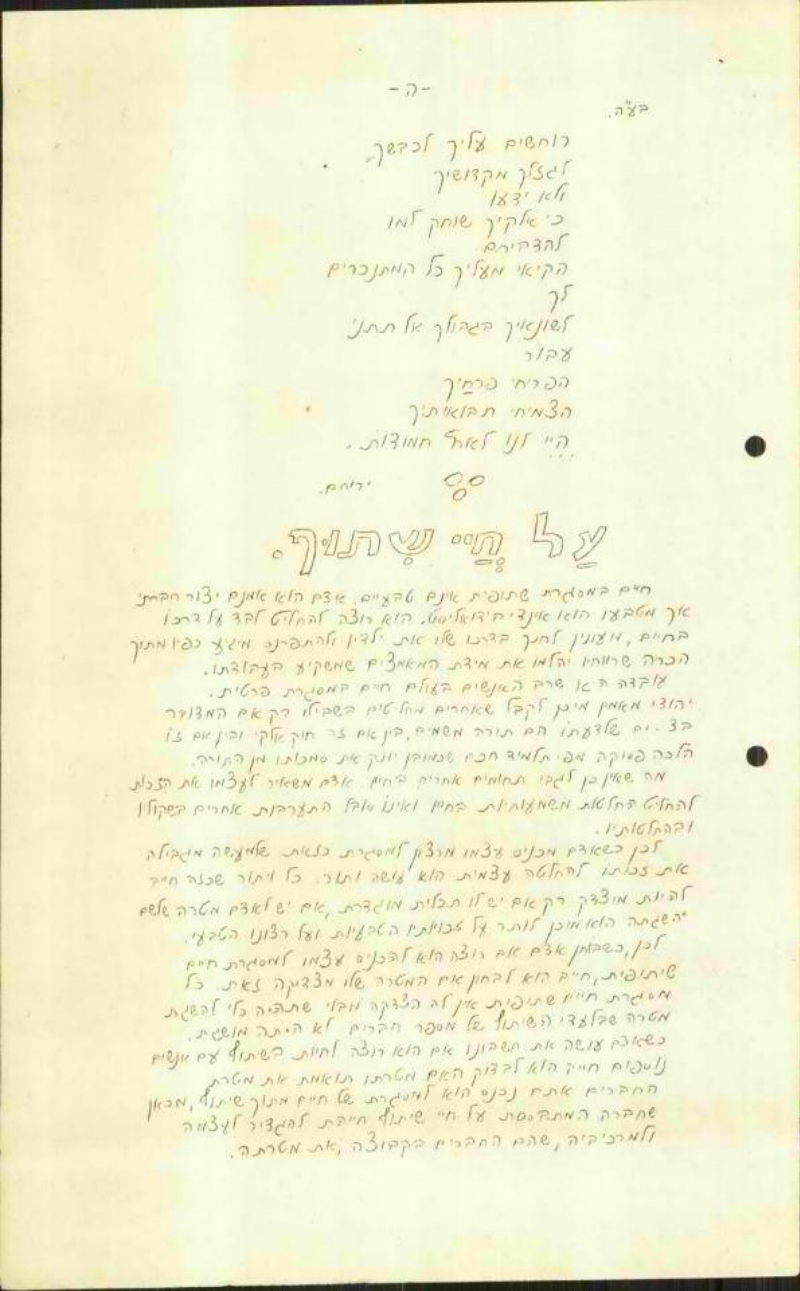 -ה-
בע"ה.
רוחשים עליך לכבשך
לגזלך מקדושיך
ולא ידעו
כי אלקיך שוחק למו
להדבירם
הקיאי מעליך כל המתנכרים
לך
לשונאיך בגבולך אל תתני
עבור
הפריחי פרחיך
הצמיחי תבואתיך
היי לנו לארץ חמודות.
ירוחם.
עַל חַיֵּי שִׁתוּף.
חיים במסגרת שתופית אינם טבעיים. אדם הוא אמנם יצור חברתי
אך מטבעו הוא אינדיוידואליסט. הוא רוצה להחליט לבד על דרכו
בחיים, מעונין לחנך בדרכו שלו את ילדיו ולהתפרנס מיגע כפיו מתוך
הכרה שרווחיו יהלמו את מידת המאמצים שמשקיע בעבודתו.
עובדה היא שרב האנשים בעולם חיים במסגרת פרטית.
יהודי מאמין מוכן לקבל שאחרים מחליטים בשבילו רק אם המדובר
שלדעתו הם תורה משמים, בין אם זה חוק אלקי ובין אם זו
הלכה פסוקה מפי תלמיד חכם שכמובן יונק את סמכותו מן התורה.
מה שאין כן לגבי תחומים אחרים בחיים. אדם משאיר לעצמו את הזכות
להחליט החלטות משמעותיות בחייו ואינו סובל התערבות אחרים בשקוליו
ובהחלטותיו.
לכן כשאדם מכניס עצמו מרצון למסגרת כזאת שלמעשה מגבילה
את זכותו להחלטה עצמית הוא עושה ותור. כל ויתור שכזה חייב
להיות מוצדק רק אם יש לו תכלית מוגדרת, אם יש לאדם מטרה שלשם
השגתה הוא מוכן לותר על זכויותיו הטבעיות ועל רצונו הטבעי.
לכן, כשבוחן אדם אם רוצה הוא להכניס עצמו למסגרת חיים
שיתופית, חייב הוא לבחון אם המטרה שלו מצדיקה זאת. כל
מסגרת חיים שתופית אין לה הצדקה מבלי שתהיה כלי להשגת
מטרה שבלעדי השיתוף של מספר חברים לא היתה מושגת.
כשאדם עושה את חשבונו אם הוא רוצה לחיות בשיתוף עם אנשים
נוספים חייב הוא לבדוק האם מטרתו תואמת את מטרת
החברים אתם נכנס הוא למסגרת של חיים מתוך שיתוף, מכאן
שחברה המתבססת על חיי שיתוף חייבת להגדיר לעצמה
ולמרכיביה, שהם החברים בקבוצה, את מטרתה.